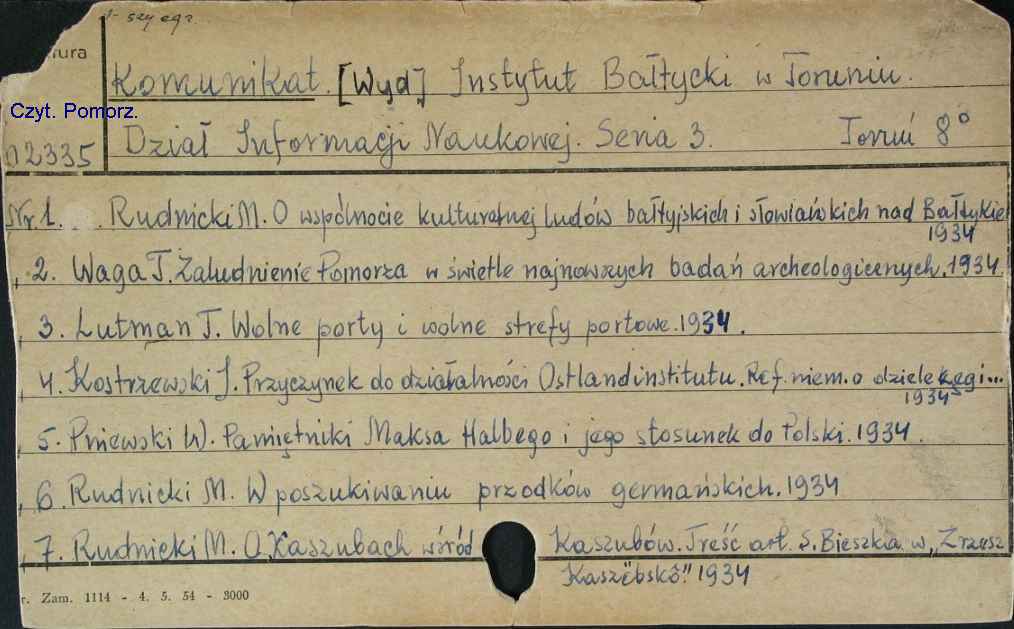 1- szy egz.
ura
Komunikat. [Wyd] Instytut Bałtycki w Toruniu.
Czyt. Pomorz.
Dział Informacji Naukowej. Seria 3. Toruń 8°
02335
Nr 1. Rudnicki M. O wspólnocie kulturalnej ludów bałtyjskich i słowiańskich nad Bałtykie
1934
2. Waga T. Zaludnienie Pomorza w świetle najnowszych badań archeologicznych. 1934.
3. Lutman T. Wolne porty i wolne strefy portowe. 1934.
4. Kostrzewski J. Przyczynek do działalności Ostlandinstitutu. Ref. niem. o dziele
1934
5. Pniewski W. Pamiętniki Maksa Halbego i jego stosunek do Polski. 1934.
6. Rudnicki M. W poszukiwaniu przodków germańskich. 1934
7. Rudnicki M. O Kaszubach wśród Kaszubów. Treść art. S. Bieszka w „Zrzesz
Kaszëbskô". 1934
r. Zam. 1114 - 4. 5. 54 - 3000